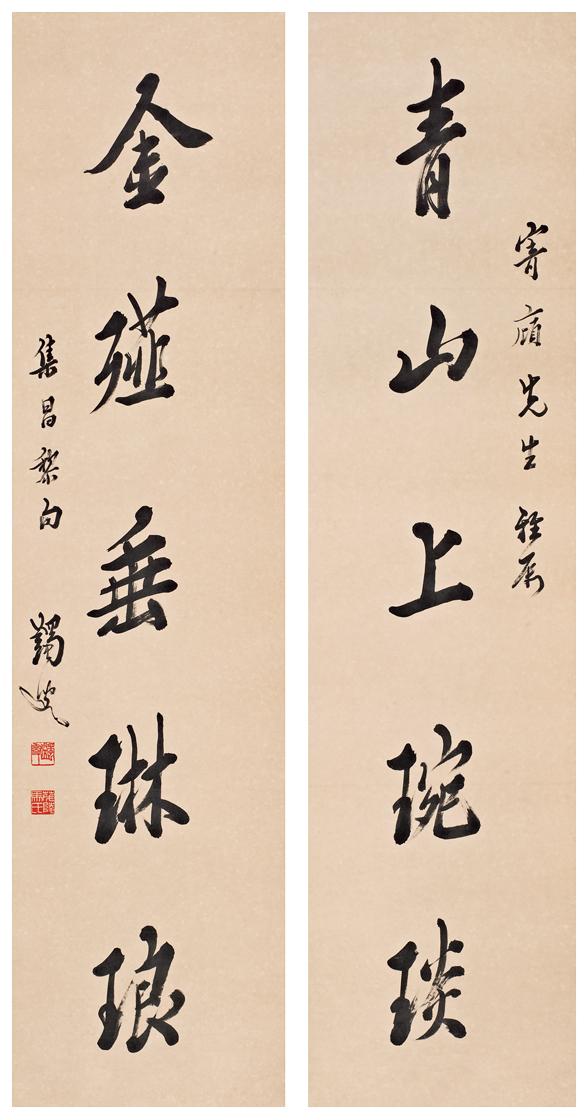 寄廎先生雅属
青山上琬琰
金薤垂琳琅
集昌黎句 蠲叟